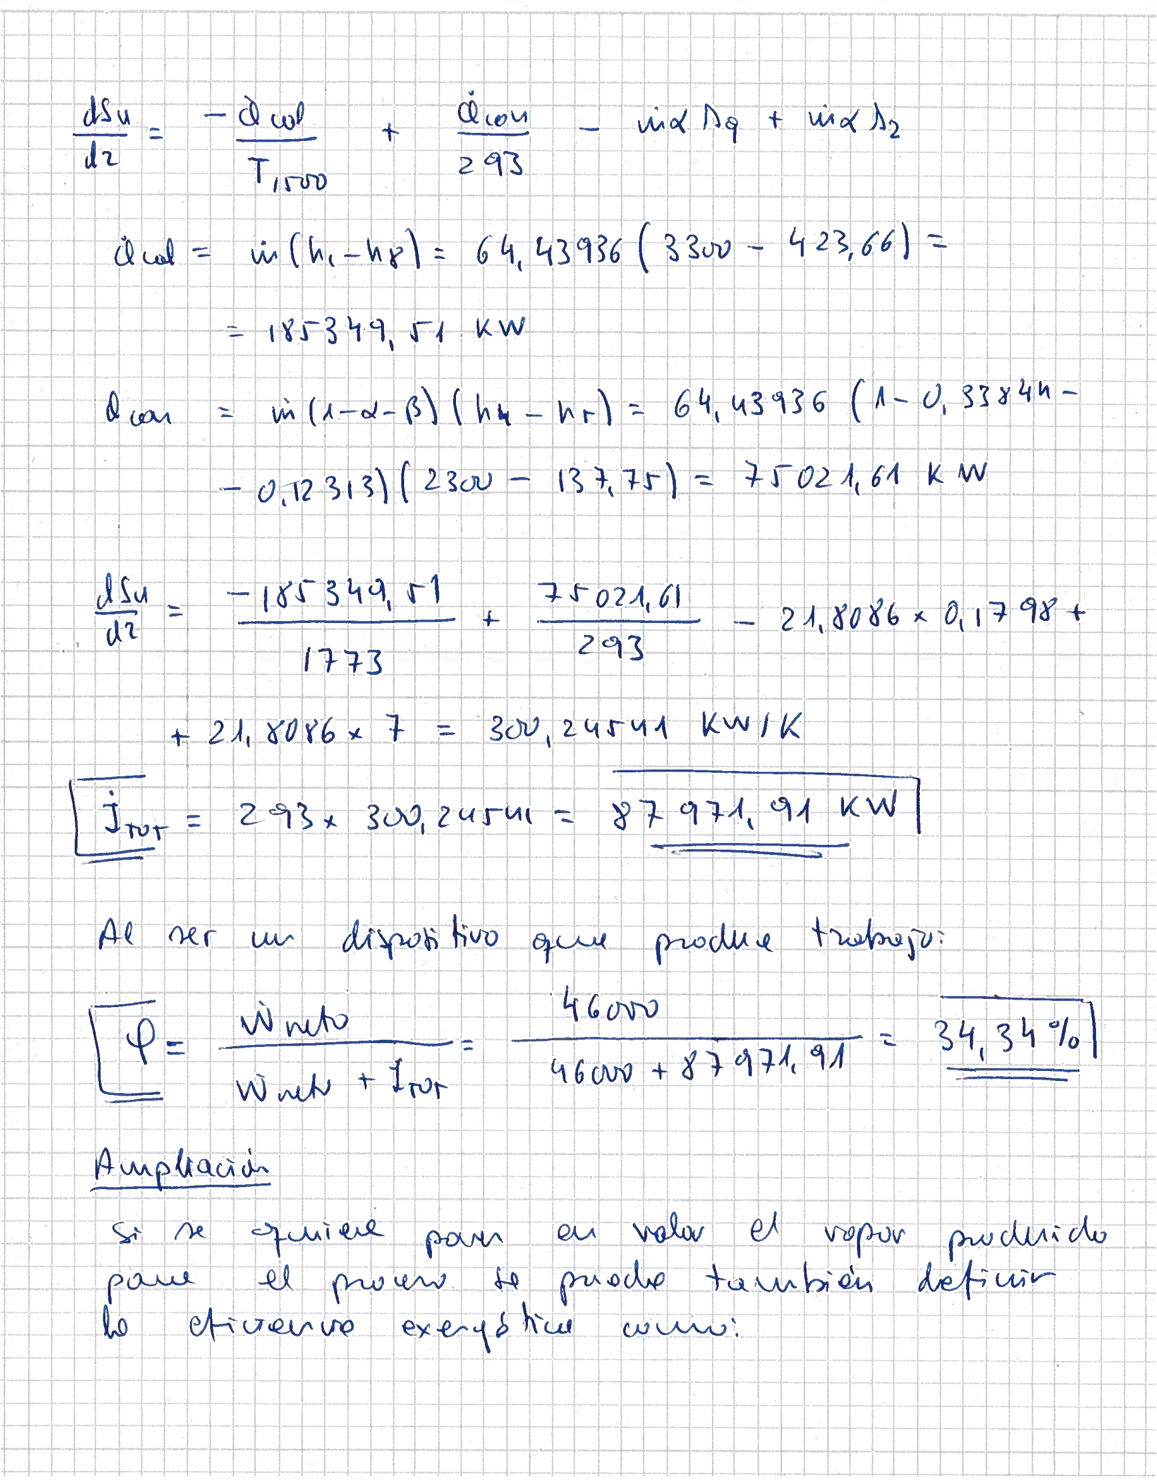 dSu/dz = -Q̇cal/T1500 + Q̇con/293 - ṁα s9 + ṁα s2
Q̇cal = ṁ(h1 - h8) = 64,43936 (3300 - 423,66) =
= 185349,51 KW
Q̇con = ṁ(1-α-β)(h4 - h5) = 64,43936 (1 - 0,33844 -
- 0,12313)(2300 - 137,75) = 75021,61 KW
dSu/dz = -185349,51/1773 + 75021,61/293 - 21,8086 × 0,1798 +
+ 21,8086 × 7 = 300,24541 KW/K
İTOT = 293 × 300,24541 = 87971,91 KW
Al ser un dispositivo que produce trabajo:
φ = Ẇneto/(Ẇneto + ITOT) = 46000/(46000 + 87971,91) = 34,34%
Ampliación
Si se quiere poner en valor el vapor producido
para el proceso se puede también definir
la eficiencia exergética como: